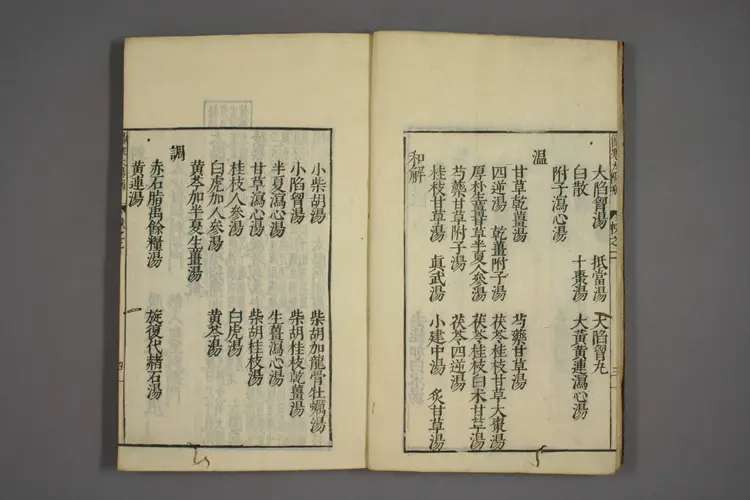 大陷胷湯 抵當湯 大陷胷丸
白散 十棗湯 大黃黃連瀉心湯
附子瀉心湯
溫
甘草乾薑湯 芍藥甘草湯
四逆湯 乾薑附子湯 茯苓桂枝甘草大棗湯
厚朴生薑甘草半夏人參湯 茯苓桂枝白朮甘草湯
芍藥甘草附子湯 茯苓四逆湯
桂枝甘草湯 眞武湯 小建中湯 炙甘草湯
和解
小柴胡湯 柴胡加龍骨牡蠣湯
小陷胷湯 柴胡桂枝乾薑湯
半夏瀉心湯 生薑瀉心湯
甘草瀉心湯 柴胡桂枝湯
桂枝人參湯 白虎湯
白虎加人參湯 黃芩湯
黃芩加半夏生薑湯
調
赤石脂禹餘糧湯 旋復代赭石湯
黃連湯